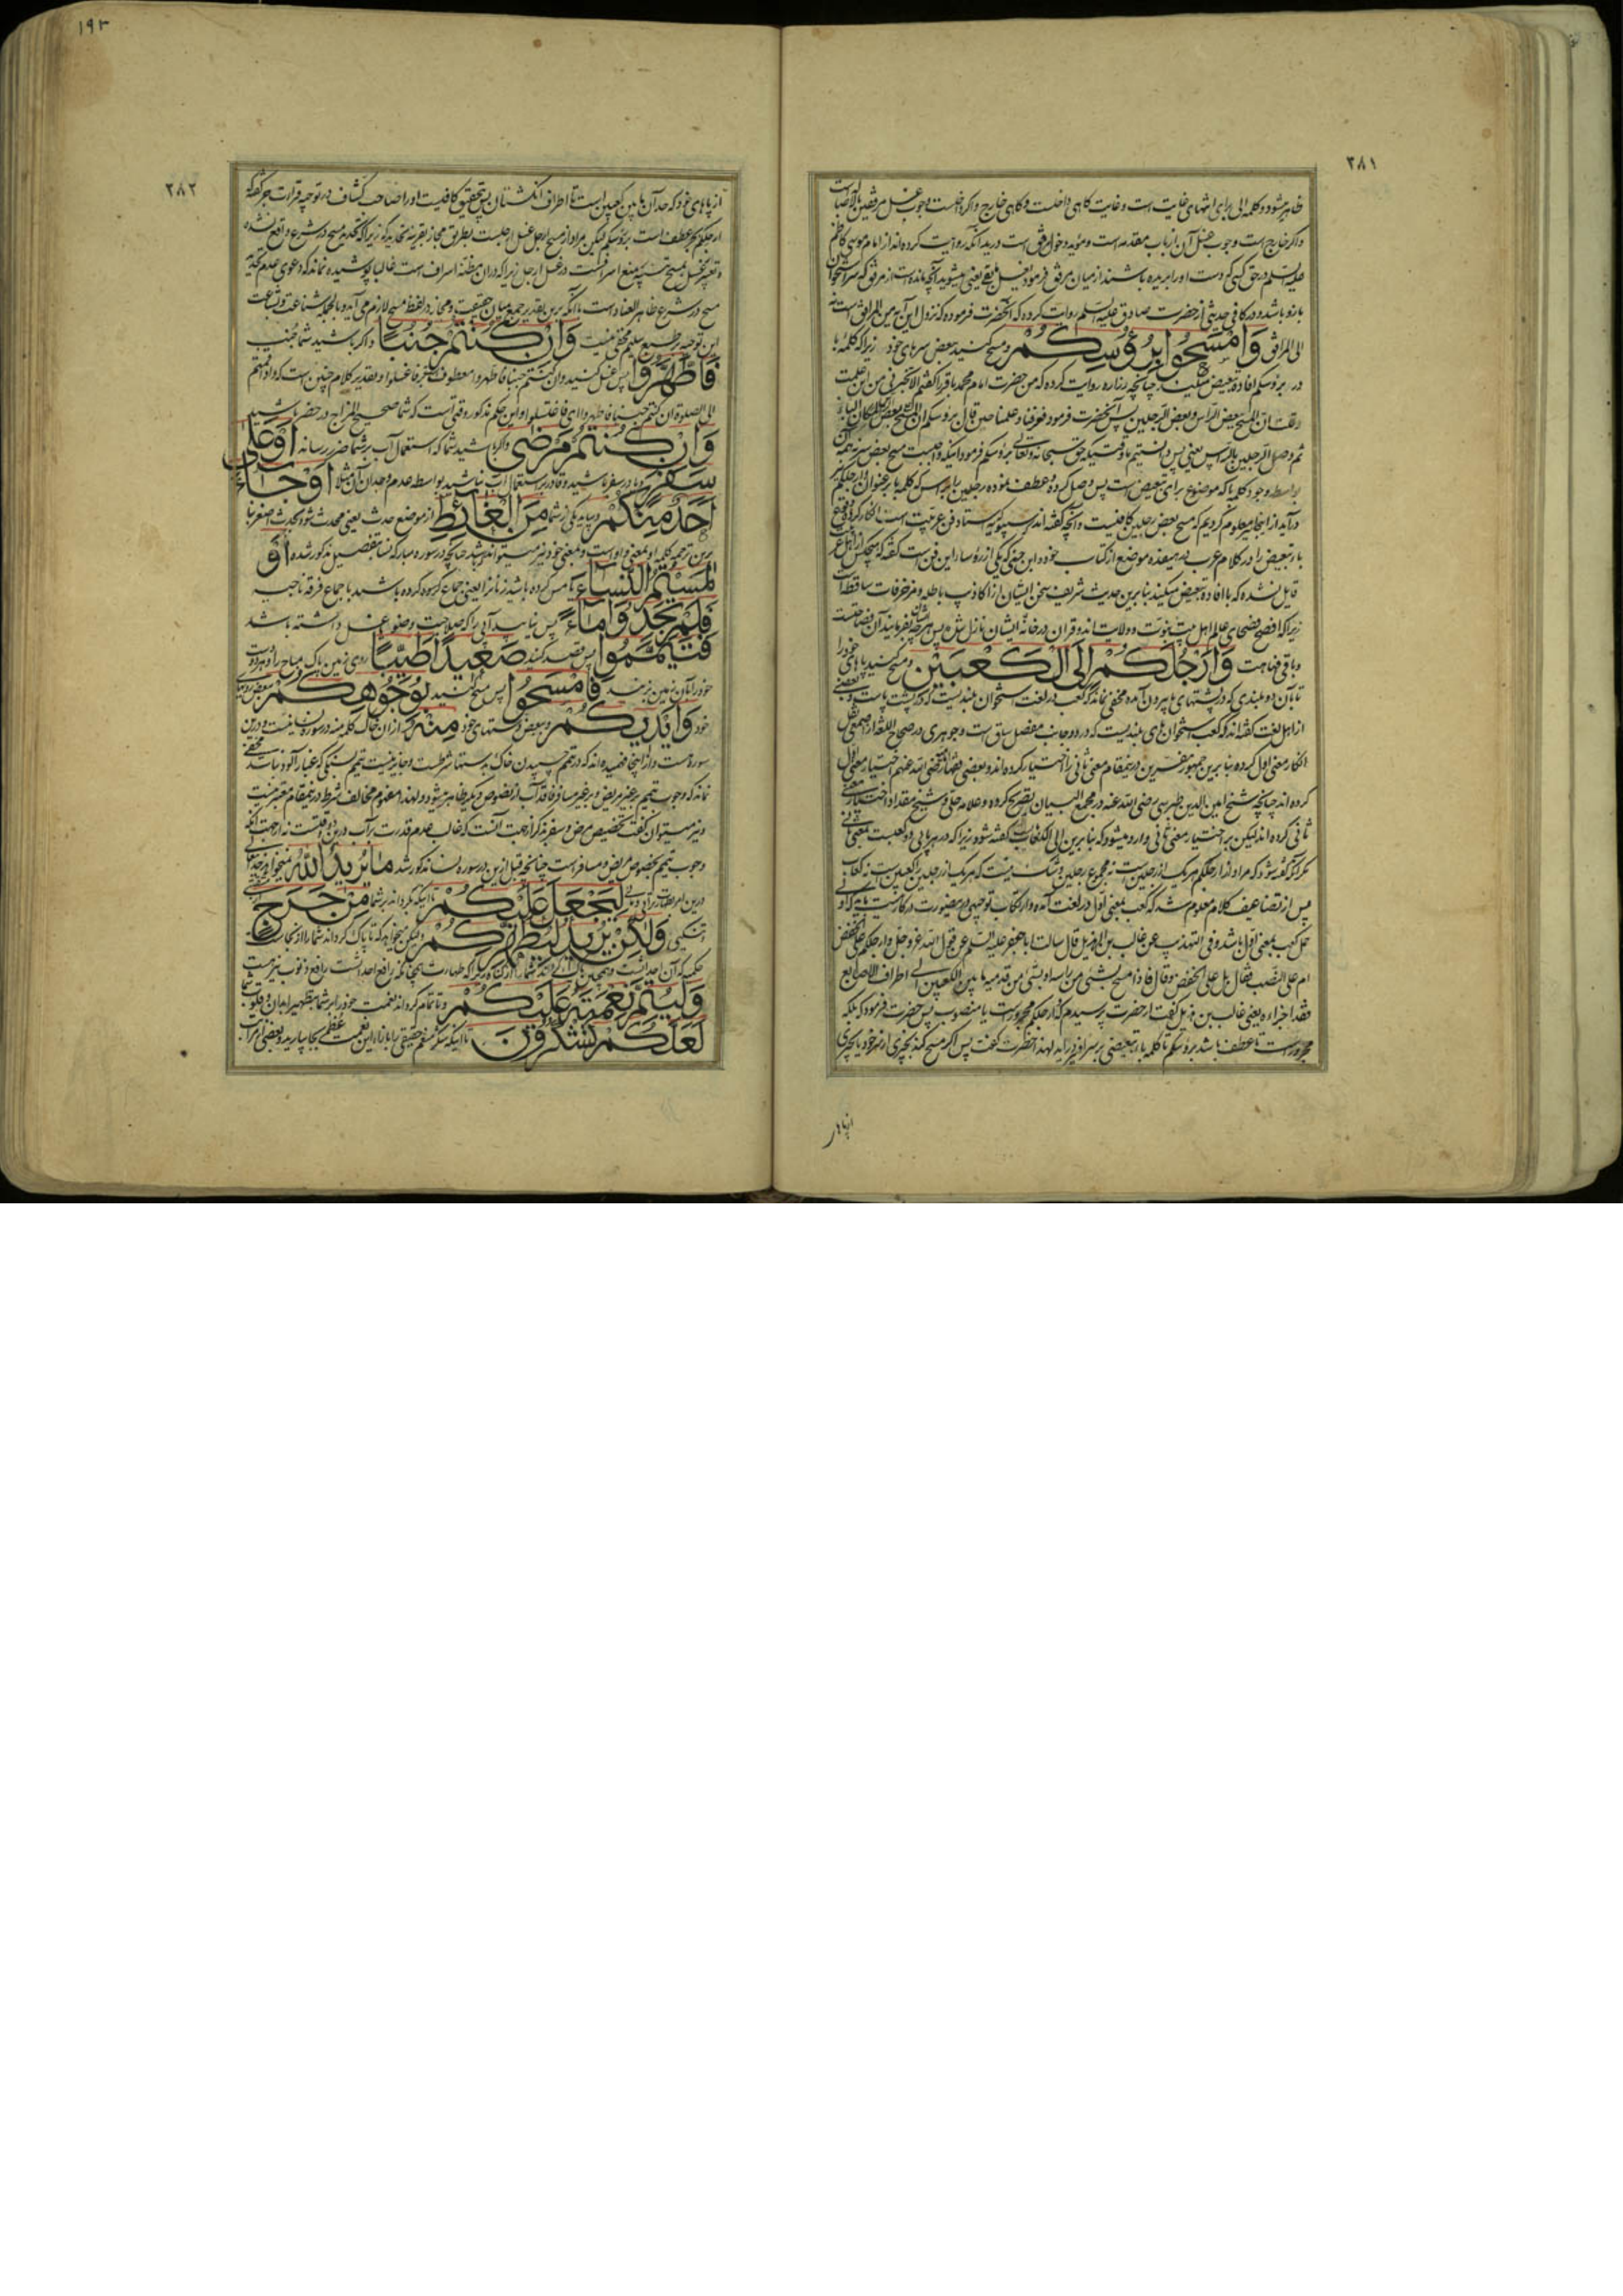 ٢٨١
ظاهر میشود و کلمه الی برای انتهای غایت است و غایت کاهی داخلست و کاهی خارج و اکر داخلست وجوب غسل مرفقین بالاصاله است
و اکر خارج است وجوب غسل آن از باب مقدمه است و مؤید دخول مرفق است در ید آنکه روایت کرده اند از امام موسی کاظم
علیه السلم در حق کسی که دست او را بریده باشند از میان مرفق فرمود یغسل ما بقی یعنی میشوید آنچه مانده است از مرفق که سر استخوان
بازو باشد و در کافی حدیثی از حضرت صادق علیه السلم روایت کرده که آنحضرت فرموده که نزول این آیه من المرافق است نه
الی المرافق وَامْسَحُوا بِرُؤُسِكُمْ و مسح کنید بعض سرهای خود زیرا که کلمه با
در برؤسکم افاده تبعیض میکند چنانچه زراره روایت کرده که من حضرت امام محمد باقر را کفتم الا تخبرنی من این علمت
و قلت ان المسح ببعض الراس و بعض الرجلین پس آنحضرت فرمود فعرفنا و علمنا حین قال برؤسکم ان المسح ببعض الراس لمکان الباء
ثم وصل الرجلین بالراس یعنی پس دانستیم ما وقتیکه حق سبحانه و تعالی برؤسکم فرمود اینکه واجبست مسح بعض سر نه همه آن
بواسطه وجود کلمه با که موضوع برای تبعیض است پس وصل کرده و عطف نموده رجلین را براس که کلمه با بر عنوان ارجلکم نیز
در آید از اینجا معلوم کردیم که مسح بعض رجلین کافیست و آنچه کفته اند سیبویه که استاد فن عربیت است انکار کرده وقوع
باء تبعیض را در کلام عرب در هیفده موضع از کتاب خود و ابن جنی که یکی از رؤسای این فن است کفته که هیچکس از اهل عربیت
قایل نشده که با افاده تبعیض میکند بنابرین حدیث شریف سخن ایشان از اکاذیب باطله و مزخرفات ساقطه است
زیرا که افصح فصحای عالم اهل بیت نبوت و ولایت اند و قران در خانه ایشان نازل شده پس هر چه ایشان بفرمایند آن فصاحتست
و باقی قباحت وَاَرْجُلَكُمْ اِلَى الْكَعْبَيْنِ و مسح کنید پاهای خود را
تا بآن دو بلندی که در پشتهای پا بیرون آمده مخفی نماند که کعب در لغت استخوان بلندیست که در پشت پا است و بعضی
از اهل لغت کفته اند که کعب استخوان های بلندیست که در دو جانب مفصل ساق است و جوهری در صحاح اللغه از اصمعی نقل
انکار معنی اول کرده بنابرین جمهور مفسرین در نیمقام معنی ثانی را اختیار کرده اند و بعضی فضلاء رضی الله عنهم اختیار معنی اول
کرده اند چنانچه شیخ امین الدین طبرسی رضی الله عنه در مجمع البیان تصریح کرده و علامه حلی و شیخ مقداد اختیار معنی
ثانی کرده اند لیکن بر اختیار معنی ثانی وارد میشود که بنابرین الی الکعاب کفته شود زیرا که در هر پایی دو کعبست بمعنی ثانی
مکر آنکه کفته شود که مراد از ارجلکم هر یک از رجلین است نه مجموع رجلین و شک نیست که هر یک از رجلین را کعبین است نه کعاب
پس از تضاعیف کلام معلوم شد که کعب بمعنی اول در لغت آمده و ارتکاب توجیهی در نیصورت در کار نیست بلکه اولی
حمل کعب بمعنی اول باشد و فی التهذیب عن غالب بن الهذیل قال سالت ابا جعفر علیه السلم عن قول الله عز و جل و ارجلکم علی الخفض
ام علی النصب فقال بل علی الخفض و قال فاذا مسح بشئ من راسه او بشئ من قدمیه ما بین الکعبین الی اطراف الاصابع
فقد اجزاءه یعنی غالب بن هذیل کفت از حضرت پرسیدم که ارجلکم مجرورست یا منصوب پس حضرت فرمود که بلکه
مجرورست تا عطف باشد برؤسکم تا کلمه باء تبعیضی بر سر او در آید لهذا حضرت کفت پس اکر مسح کند بچیزی از سر خود یا بچیزی
از پاهای
١٩٣
٢٨٢
از پاهای خود که حد آن ما بین کعبین است تا اطراف انکشتان پس بتحقیق کافیست او را صاحب کشاف در توجیه قراءت جر کفته که
ارجلکم بجر عطف است برؤسکم لیکن مراد از مسح ارجل غسل ارجلست بطریق مجاز بقرینه تحدید کور زیرا که تحدید مسح در شرع واقع نشده
و تعبیر غسل بمسح تنبیه بر منع اسرافست در غسل ارجل زیرا که در ان مظنه اسراف است غالبا پوشیده نماند که دعوی عدم تحدید
مسح در شرع ظاهر العناد است با آنکه برین تقدیر جمع میان حقیقت و مجاز در لفظ مسح لازم می آید و بالجمله شناعت و بشاعت
این توجیه بر طبع سلیم مخفی نیست وَاِنْ كُنْتُمْ جُنُبًا و اکر باشید شما جنب
فَاطَّهَّرُوا پس غسل کنید و ان کنتم جنبا فاطهروا معطوف است بر فاغسلوا و تقدیر کلام چنین است که و اذا قمتم
الی الصلوة ان کنتم جنبا فاطهروا ای فاغتسلوا و این حکم مذکور وقتی است که شما صحیح المزاج در حضر باشید
وَاِنْ كُنْتُمْ مَرْضٰى و اکر باشید شما که استعمال آب بر شما ضرر رساند اَوْ عَلٰى
سَفَرٍ و یا در سفر باشید و قادر بر استعمال آب نباشید بواسطه عدم وجدان آن مثلا اَوْ جَاءَ
اَحَدٌ مِنْكُمْ و بیاید یکی از شما مِنَ الْغَائِطِ از موضع حدث یعنی محدث شود بحدث اصغر بنا
برین ترجمه کلمه او بمعنی واو است و بمعنی خود نیز میتواند شد چنانچه در سوره مبارکه نسا بتفصیل مذکور شده اَوْ
لٰمَسْتُمُ النِّسَاءَ یا مس کرده باشید زنانرا یعنی جماع کرده باشید باجماع فرقه ناجیه
فَلَمْ تَجِدُوا مَاءً پس نیابید آبی را که صلاحیت وضو و غسل داشته باشد
فَتَيَمَّمُوا پس قصد کنید صَعِيْدًا طَيِّبًا روی زمین پاک مباح را و هر دو دست
خود را بآن زمین بزنید فَامْسَحُوا پس مسح کنید بِوُجُوْهِكُمْ بعض رویهای
خود وَاَيْدِيْكُمْ و بعض دستهای خود مِنْهُ از ان خاک کلمه منه در سوره نسا نیست و درین
سوره هست و از اینجا فهمیده اند که در تیمم چسپیدن خاک بدستها شرطست و جایز نیست تیمم بسنکی که غبار آلود نباشد مخفی
نماند که وجوب تیمم بر غیر مریض و بر غیر مسافر فاقد آب از نصوص دیکر ظاهر میشود و لهذا مفهوم مخالف شرط در نیمقام معتبر نیست
و نیز میتوان کفت تخصیص مرض و سفر بذکر از جهت آنست که غالب عدم قدرت بر آب درین دو وقتست نه از جهت آنکه
وجوب تیمم مخصوص مریض و مسافر است چنانچه قبل ازین در سوره نسا مذکور شد مَا يُرِيْدُ اللّٰهُ نمیخواهد خدای
درین امر بطهارت آبی و خاکی لِيَجْعَلَ عَلَيْكُمْ تا اینکه بکرداند بر شما مِنْ حَرَجٍ
تنکیی وَلٰكِنْ يُرِيْدُ لِيُطَهِّرَكُمْ و لیکن میخواهد که تا پاک کرداند شما را از نجاست
حکمیه که آن احداثست و همچنین تا پاک کرداند شما را از کناه زیرا که طهارت همچنانکه رافع احداثست رافع ذنوب نیز هست
وَلِيُتِمَّ نِعْمَتَهُ عَلَيْكُمْ و تا تمام کرداند نعمت خود را بر شما بتطهیر ابدان و قلوب شما
لَعَلَّكُمْ تَشْكُرُوْنَ تا اینکه شکر منعم حقیقی را بازاء این نعمت عظمی بجا بیارید و بعضی از اهل